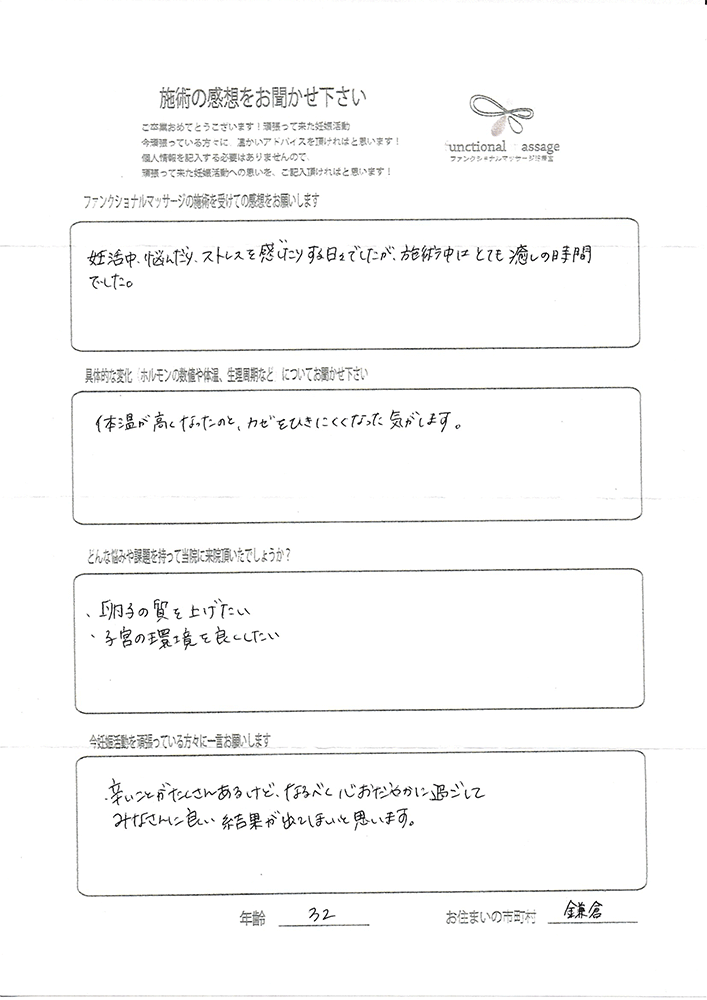 施術の感想をお聞かせ下さい
ご卒業おめでとうございます！頑張って来た妊娠活動
今頑張っている方々に、温かいアドバイスを頂ければと思います！
個人情報を記入する必要はありませんので、
頑張って来た妊娠活動への思いを、ご記入頂ければと思います！
unctional assage
ファンクショナルマッサージ治療室
ファンクショナルマッサージの施術を受けての感想をお願いします
妊活中、悩んだり、ストレスを感じたりする日々でしたが、施術中はとても癒しの時間
でした。
具体的な変化（ホルモンの数値や体温、生理周期など）についてお聞かせ下さい
体温が高くなったのと、カゼをひきにくくなった気がします。
どんな悩みや課題を持って当院に来院頂いたでしょうか？
、卵子の質を上げたい
、子宮の環境を良くしたい
今妊娠活動を頑張っている方々に一言お願いします
辛いことがたくさんあるけど、なるべく心おだやかに過ごして
みなさんに良い結果が出てほしいと思います。
年齢 32 お住まいの市町村 鎌倉